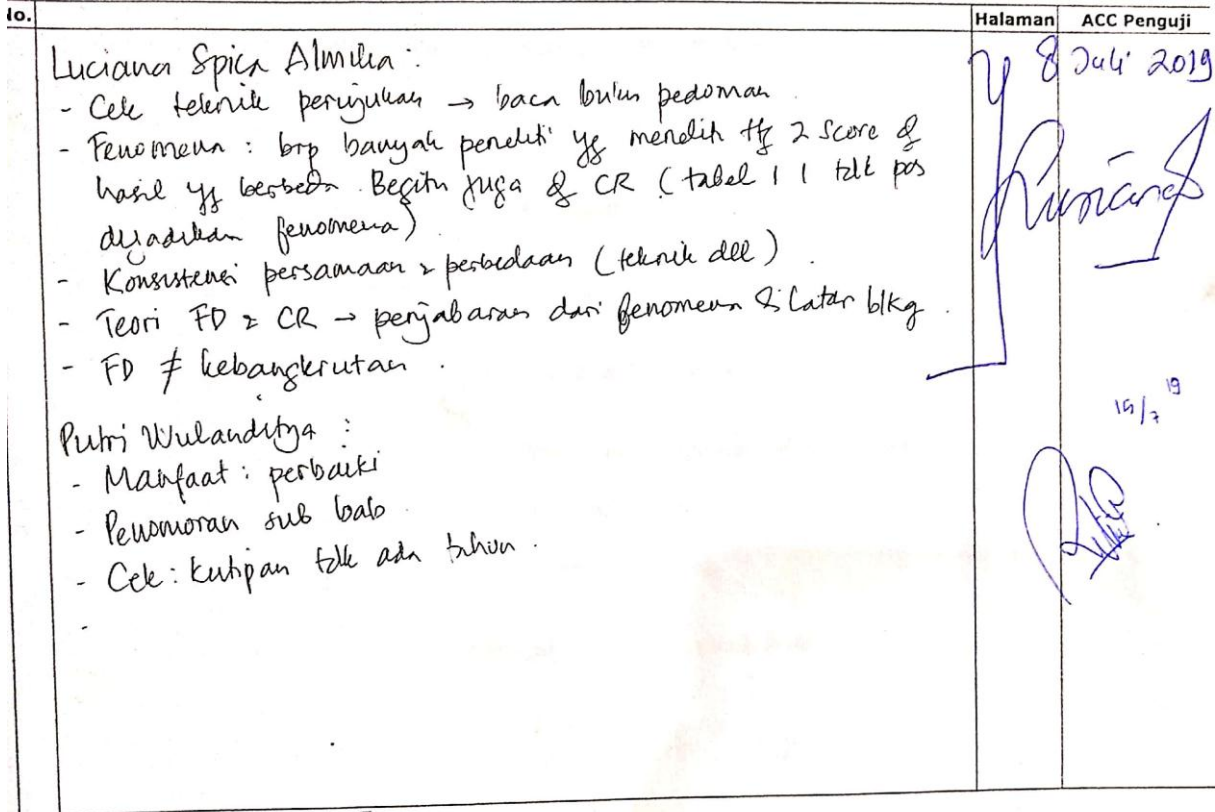 No. Halaman ACC Penguji
Luciana Spica Almilia :
- Cek teknik perujukan → baca buku pedoman
- Fenomena : brp banyak peneliti yg meneliti ttg Z Score dg
hasil yg berbeda. Begitu juga dg CR (tabel 1.1 tdk pas
dijadikan fenomena)
- Konsistensi persamaan & perbedaan (teknik dll)
- Teori FD & CR → penjabaran dari fenomena di latar blkg.
- FD ≠ kebangkrutan.
Putri Wulanditya :
- Manfaat : perbaiki
- Penomoran sub bab
- Cek : kutipan tdk ada tahun.
-
8 Juli 2019
Luciana S
19